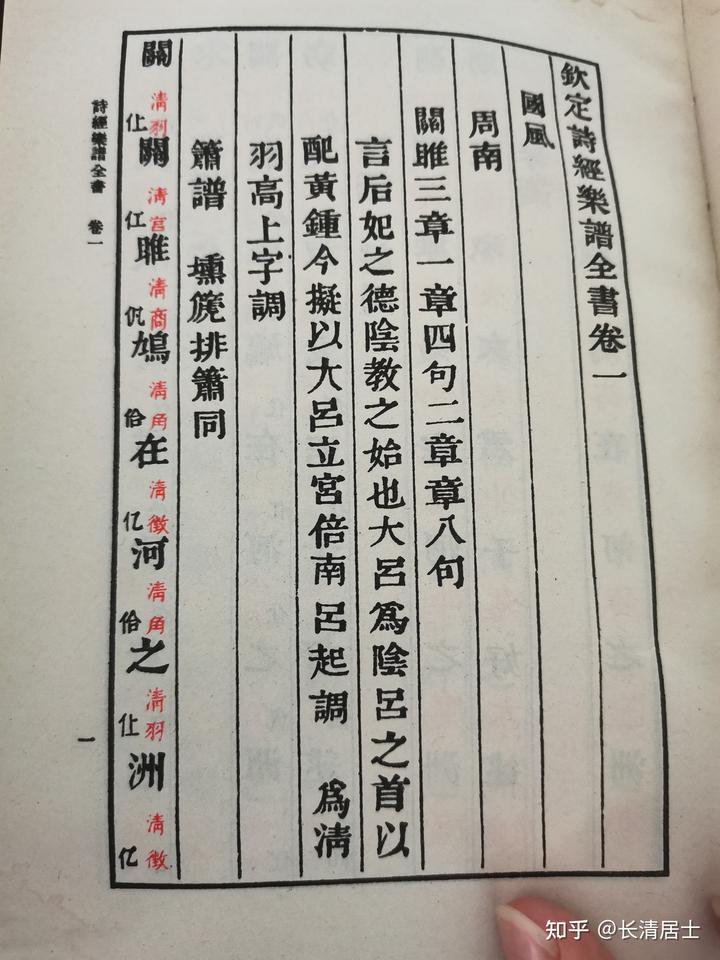 欽定詩經樂譜全書卷一
國風
周南
關雎三章一章四句二章章八句
言后妃之德陰教之始也大呂爲陰呂之首以
配黃鍾今擬以大呂立宮倍南呂起調　爲清
羽高上字調
簫譜　壎篪排簫同
關 清羽 仩 關 清宮 仜 雎 清商 鳩 清角 佮 在 清徵 亿 河 清角 佮 之 清羽 仩 洲 清徵 亿
詩經樂譜全書　卷一
一
知乎 @长清居士